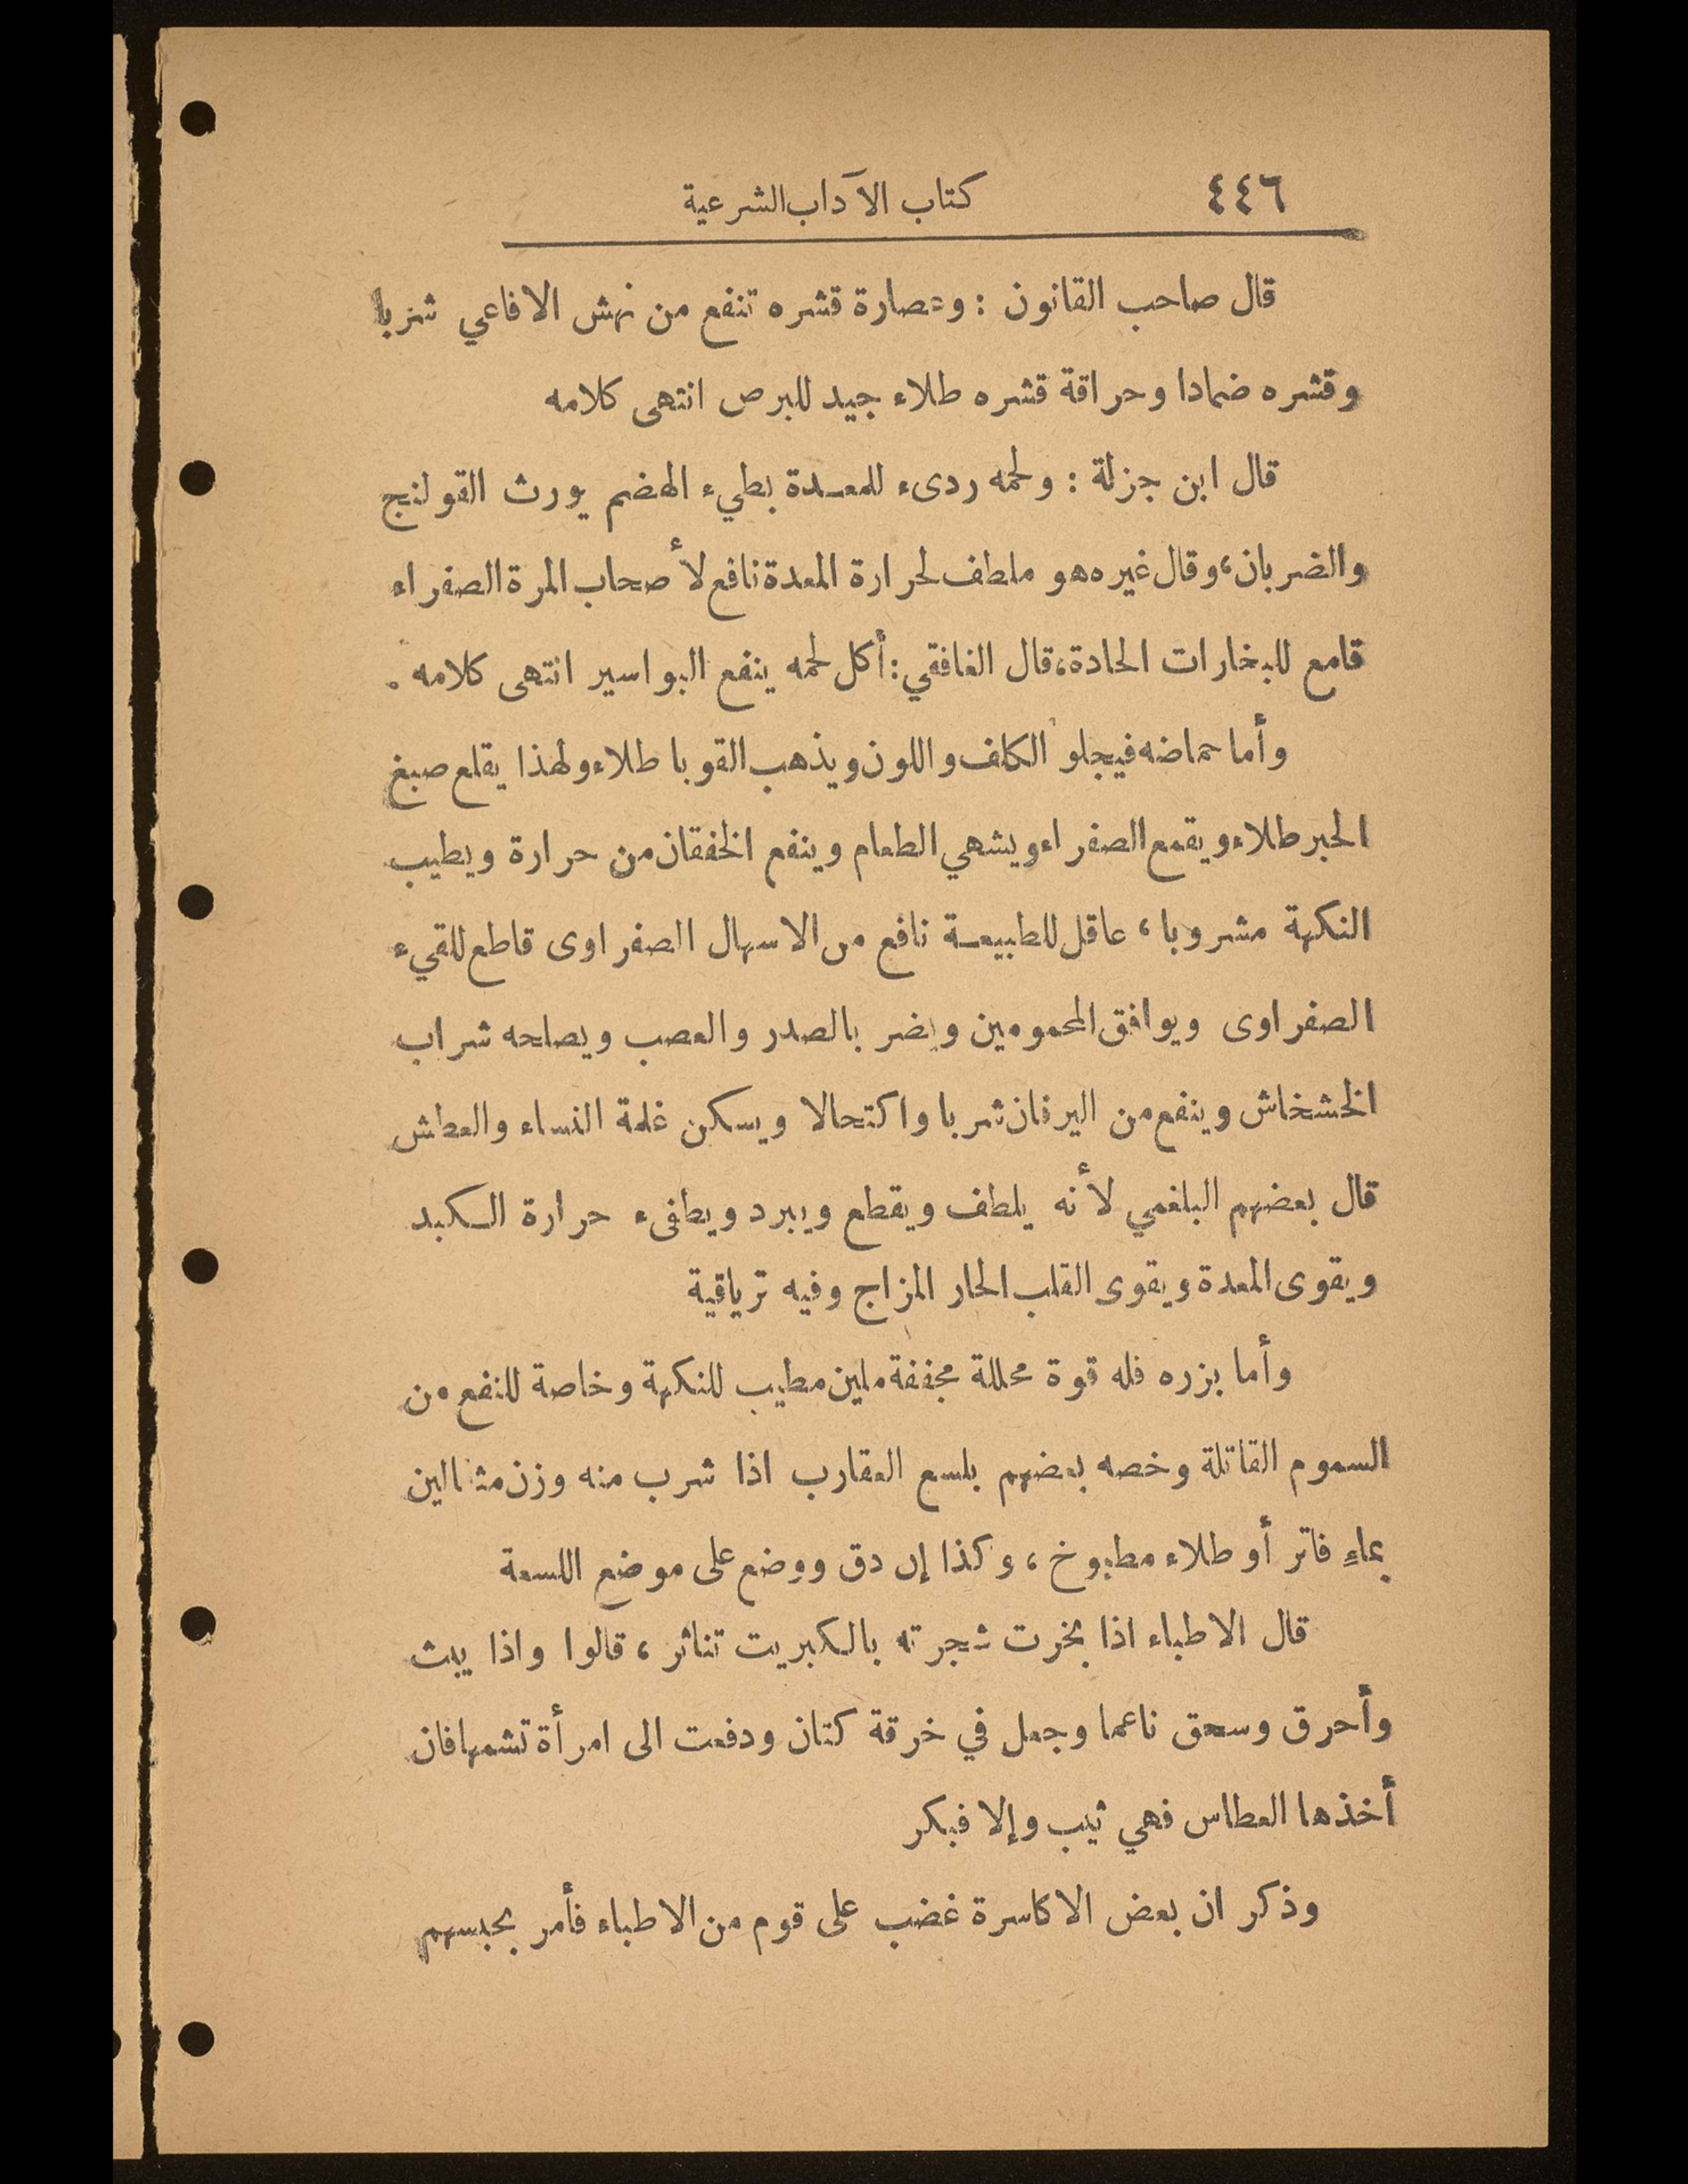 ٤٤٦ كتاب الآداب الشرعية
قال صاحب القانون : وعصارة قشره تنفع من نهش الافاعي شربا
وقشره ضمادا وحراقة قشره طلاء جيد للبرص انتهى كلامه
قال ابن جزلة : ولحمه ردىء للمعدة بطيء الهضم يورث القولنج
والضربان، وقال غيره هو ملطف لحرارة المعدة نافع لأصحاب المرة الصفراء
قامع للبخارات الحادة، قال الغافقي: أكل لحمه ينفع البواسير انتهى كلامه .
وأما حماضه فيجلو الكلف واللون ويذهب القوبا طلاء ولهذا يقلع صبغ
الحبر طلاء ويقمع الصفراء ويشهي الطعام وينفع الخفقان من حرارة ويطيب
النكهة مشروبا ، عاقل للطبيعة نافع من الاسهال الصفراوى قاطع للقيء
الصفراوى ويوافق المحمومين ويضر بالصدر والعصب ويصلحه شراب
الخشخاش وينفع من اليرقان شربا واكتحالا ويسكن غلمة النساء والعطش
قال بعضهم البلغمي لأنه يلطف ويقطع ويبرد ويطفىء حرارة الكبد
ويقوى المعدة ويقوى القلب الحار المزاج وفيه ترياقية
وأما بزره فله قوة محللة مجففة ملين مطيب للنكهة وخاصة للنفع من
السموم القاتلة وخصه بعضهم بلسع العقارب اذا شرب منه وزن مثقالين
بماءٍ فاتر أو طلاء مطبوخ ، وكذا إن دق ووضع على موضع اللسعة
قال الاطباء اذا بخرت شجرته بالكبريت تناثر ، قالوا واذا يبث
وأحرق وسحق ناعما وجعل في خرقة كتان ودفعت الى امرأة تشمها فان
أخذها العطاس فهي ثيب وإلا فبكر
وذكر ان بعض الاكاسرة غضب على قوم من الاطباء فأمر بحبسهم